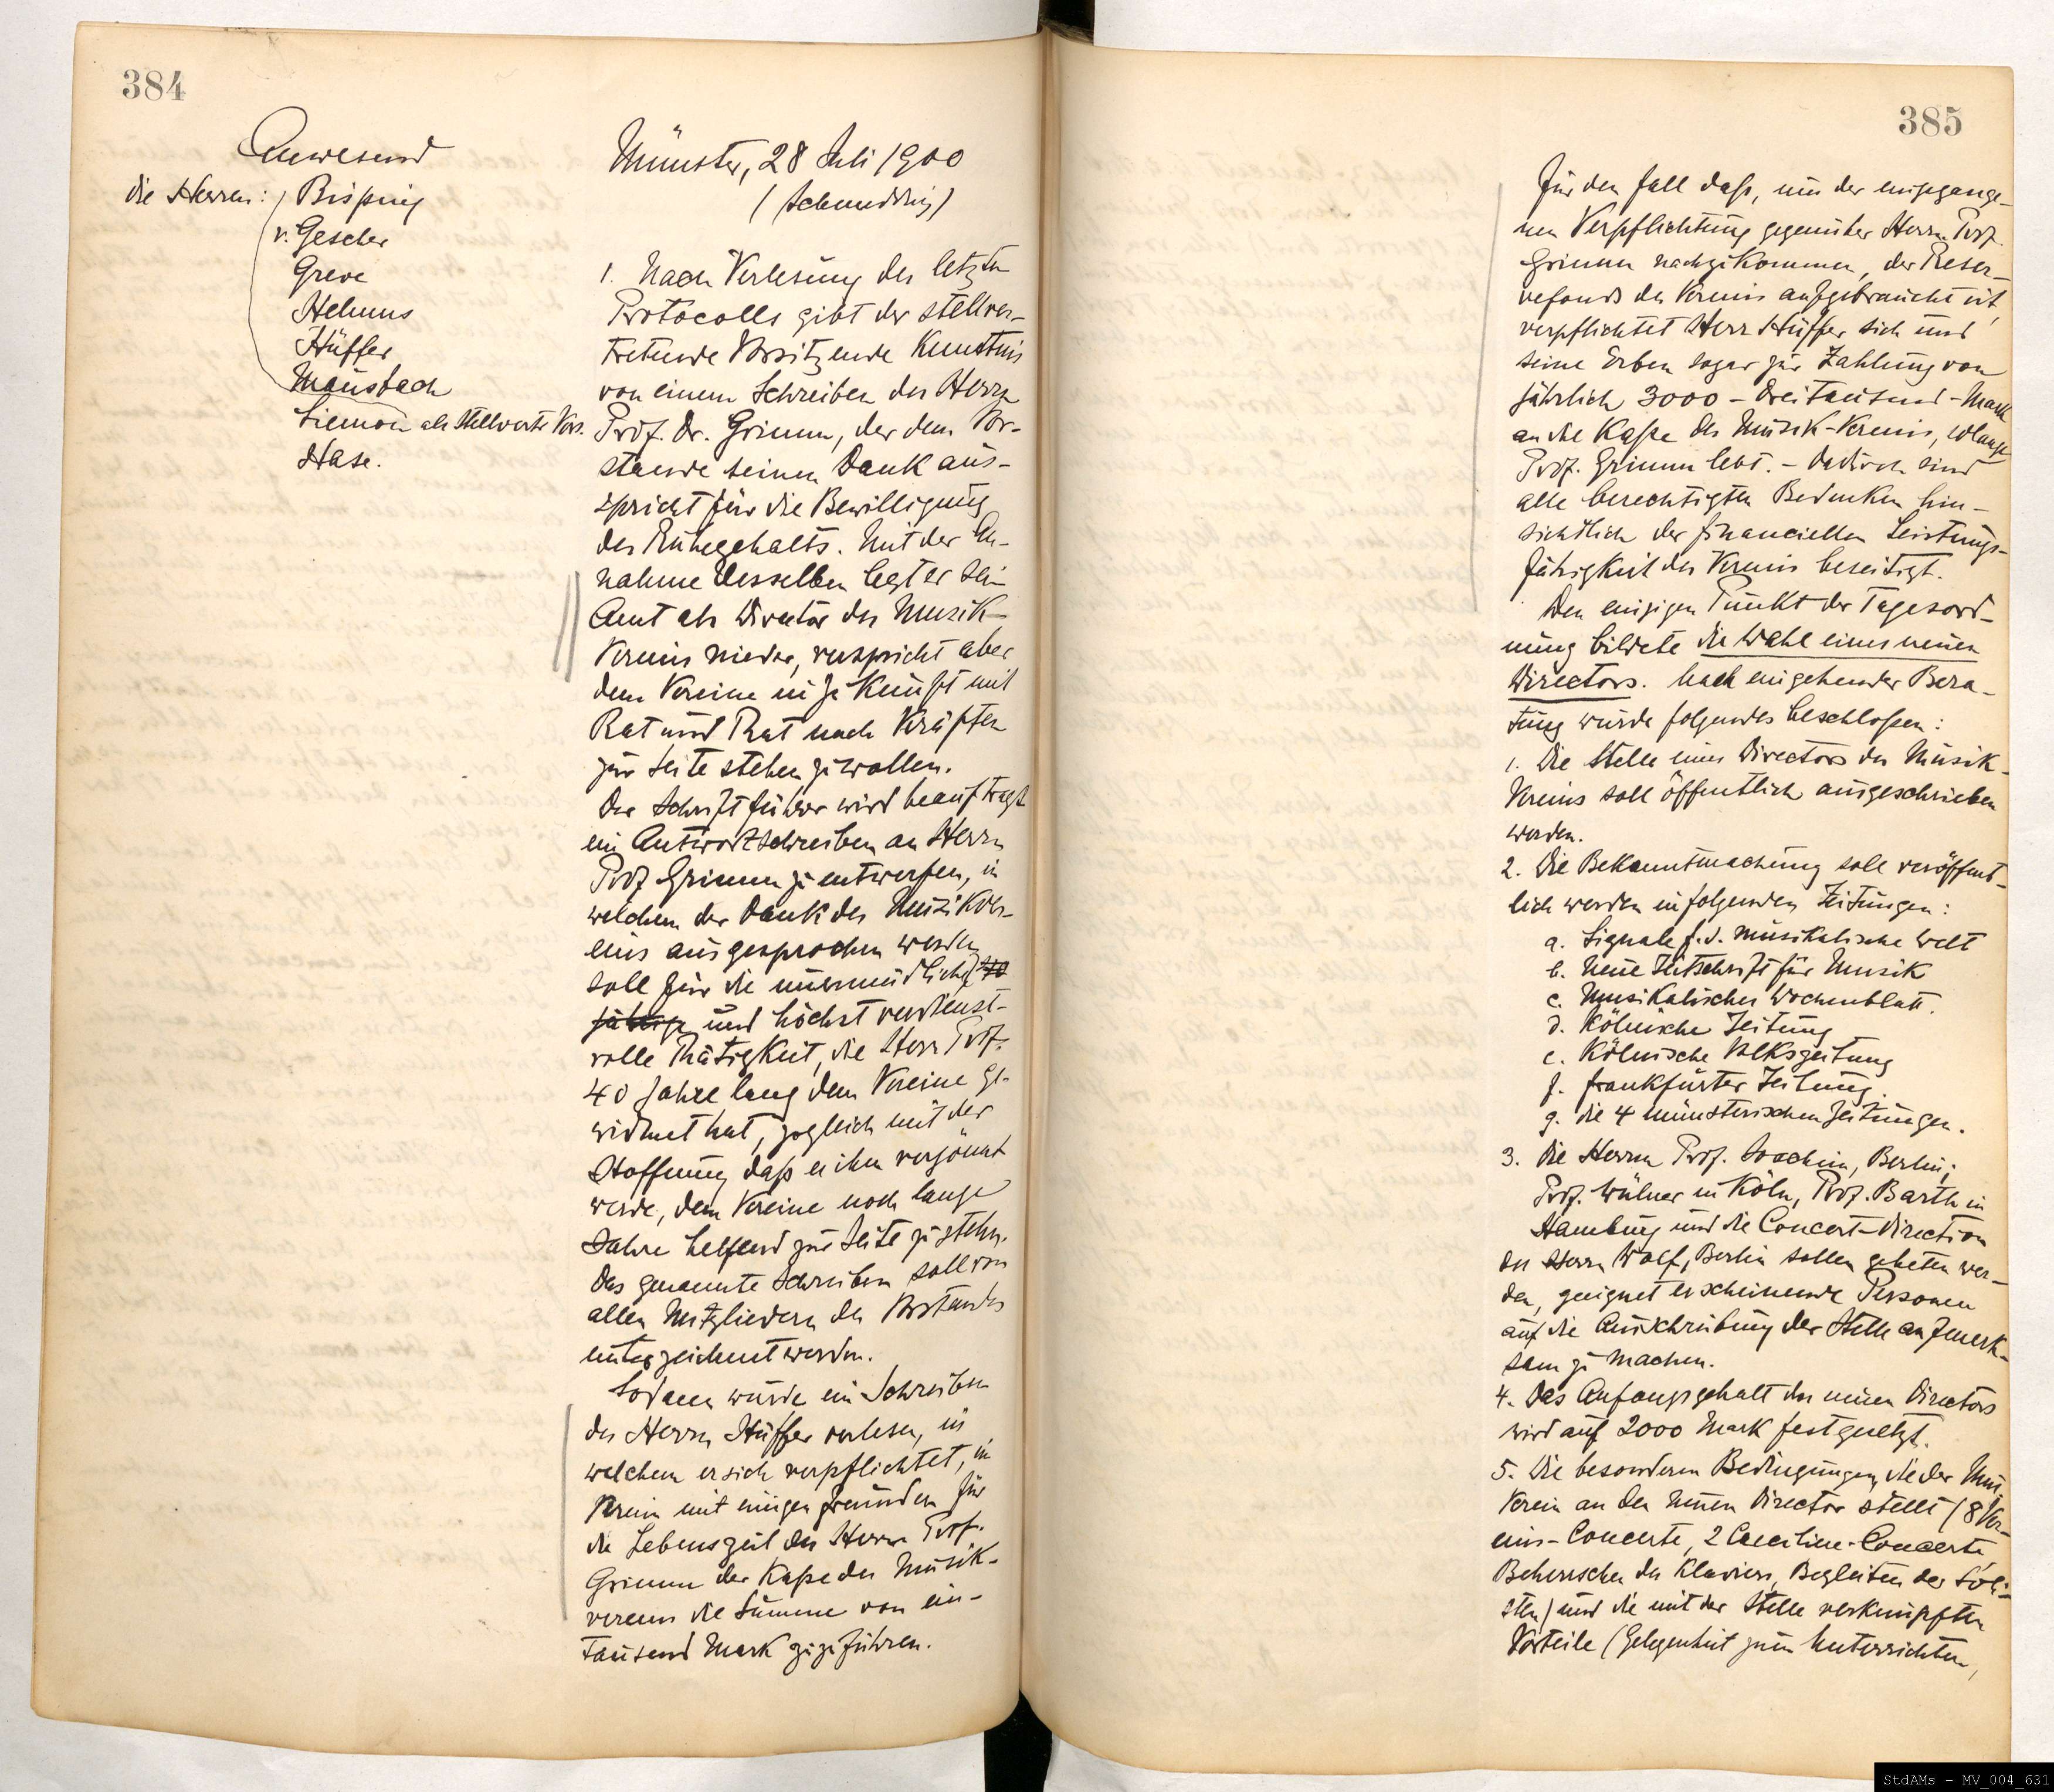 384
Anwesend
die Herren: Bisping
v. Gescher
Greve
Helmus
Hüffer
Mausbach
Siemon als Stellvertr. Vors.
Hase.
Münster, 28 Juli 1900
(Schmedding)
1. Nach Verlesung des letzten
Protocolls gibt der stellver-
tretende Vorsitzende Kenntnis
von einem Schreiben des Herrn
Prof. Dr. Grimm, der dem Vor-
stande seinen Dank aus-
spricht für die Bewilligung
des Ruhegehalts. Mit der An-
nahme desselben legt er sein
Amt als Director des Musik-
Vereins nieder, verspricht aber
dem Vereine in Zukunft mit
Rat und That nach Kräften
zur Seite stehen zu wollen.
Der Schriftführer wird beauftragt
ein Antwortschreiben an Herrn
Prof Grimm zu entwerfen, in
welchem der Dank des Musikver-
eins ausgesprochen werden
soll für die unermüdliche 40
jährige und höchst verdienst-
volle Thätigkeit, die Herr Prof.
40 Jahre lang dem Vereine ge-
widmet hat, zugleich mit der
Hoffnung daß es ihm vergönnt
werde, dem Vereine noch lange
Jahre helfend zur Seite zu stehn.
Das genannte Schreiben soll von
allen Mitgliedern des Vorstandes
unterzeichnet werden.
Sodann wurde ein Schreiben
des Herrn Hüffer verlesen, in
welchem er sich verpflichtet, im
Verein mit einigen Freunden für
die Lebenszeit des Herrn Prof.
Grimm der Kaße des Musik-
vereins die Summe von ein-
tausend Mark zuzuführen.
385
Für den Fall daß, um der eingegange-
nen Verpflichtung gegenüber Herrn Prof.
Grimm nachzukommen, der Reser-
vefonds des Vereins aufgebraucht ist,
verpflichtet Herr Hüffer sich und
seine Erben sogar zur Zahlung von
jährlich 3000 - dreitausend - Mark
an die Kaße des Musik-Vereins, solange
Prof. Grimm lebt. - Dadurch sind
alle berechtigten Bedenken hin-
sichtlich der financiellen Leistungs-
fähigkeit des Vereins beseitigt.
Den einzigen Punkt der Tagesord-
nung bildete die Wahl eines neuen
Directors. Nach eingehender Bera-
tung wurde folgendes beschloßen:
1. Die Stelle eines Directors des Musik-
Vereins soll öffentlich ausgeschrieben
werden.
2. Die Bekanntmachung soll veröffent-
lich werden in folgenden Zeitungen:
a. Signale f. d. musikalische Welt
b. Neue Zeitschrift für Musik
c. Musikalisches Wochenblatt.
d. Kölnische Zeitung
e. Kölnische Volkszeitung
f. Frankfurter Zeitung.
g. die 4 münsterischen Zeitungen.
3. Die Herren Prof. Joachim, Berlin,
Prof. Wülner in Köln, Prof. Barth in
Hamburg und die Concert-Direction
des Herrn Wolf, Berlin sollen gebeten wer-
den, geeignet erscheinende Personen
auf die Ausschreibung der Stelle aufmerk-
sam zu machen.
4. Das Anfangsgehalt des neuen Directors
wird auf 2000 Mark festgesetzt.
5. Die besonderen Bedingungen, die der Mus.
Verein an den neuen Director stellt (8 Ver-
eins-Concerte, 2 Caecilien-Concerte,
Beherrschen des Klaviers, Begleiten der Soli-
sten) und die mit der Stelle verknüpften
Vorteile (Gelegenheit zum Unterrichten,
StdAMs - MV_004_631